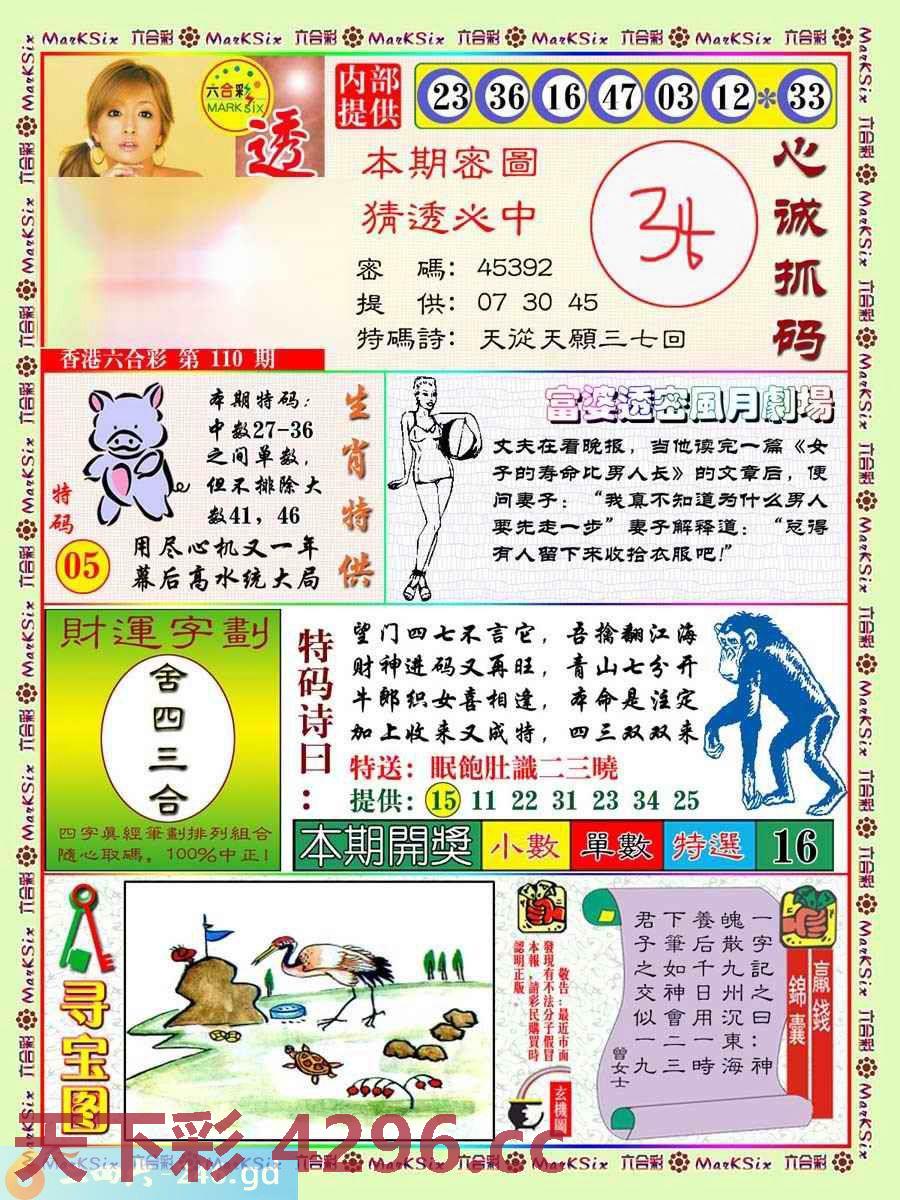 MarKSix 六合彩 MarKSix 六合彩 MarKSix 六合彩 MarKSix 六合彩 MarKSix 六合彩
六合彩
MARK SIX
透
内部
提供
23 36 16 47 03 12*33
本期密圖
猜透必中
密 碼：45392
提 供：07 30 45
特碼詩：天從天願三七回
心诚抓码
香港六合彩 第 110 期
特码
05
本期特码：
中数27-36
之间单数，
但不排除大
数41，46
用尽心机又一年
幕后高水统大局
生肖特供
富婆透密風月劇場
丈夫在看晚报，当他读完一篇《女
子的寿命比男人长》的文章后，便
问妻子：“我真不知道为什么男人
要先走一步”妻子解释道：“总得
有人留下来收拾衣服吧！”
財運字劃
舍四三合
四字真經筆劃排列組合
隨心取碼，100%中正！
特码诗曰：
望门四七不言它，吾擒翻江海
财神进码又再旺，青山七分开
牛郎织女喜相逢，本命是注定
加上收来又成特，四三双双来
特送：眠飽肚識二三曉
提供：15 11 22 31 23 34 25
本期開獎 小數 單數 特選 16
寻宝图
敬告：最近市面
發現有不法分子假冒
本報，請彩民購買時
認明正版。
玄機圖
一字記之曰：神
魄散九州沉東海
養后千日用一時
下筆如神會二三
君子之交似一九
曾女士
贏錢
錦囊
天下彩 4296.cc
MarKSix 六合彩 MarKSix 六合彩 MarKSix 六合彩 MarKSix 六合彩 MarKSix 六合彩